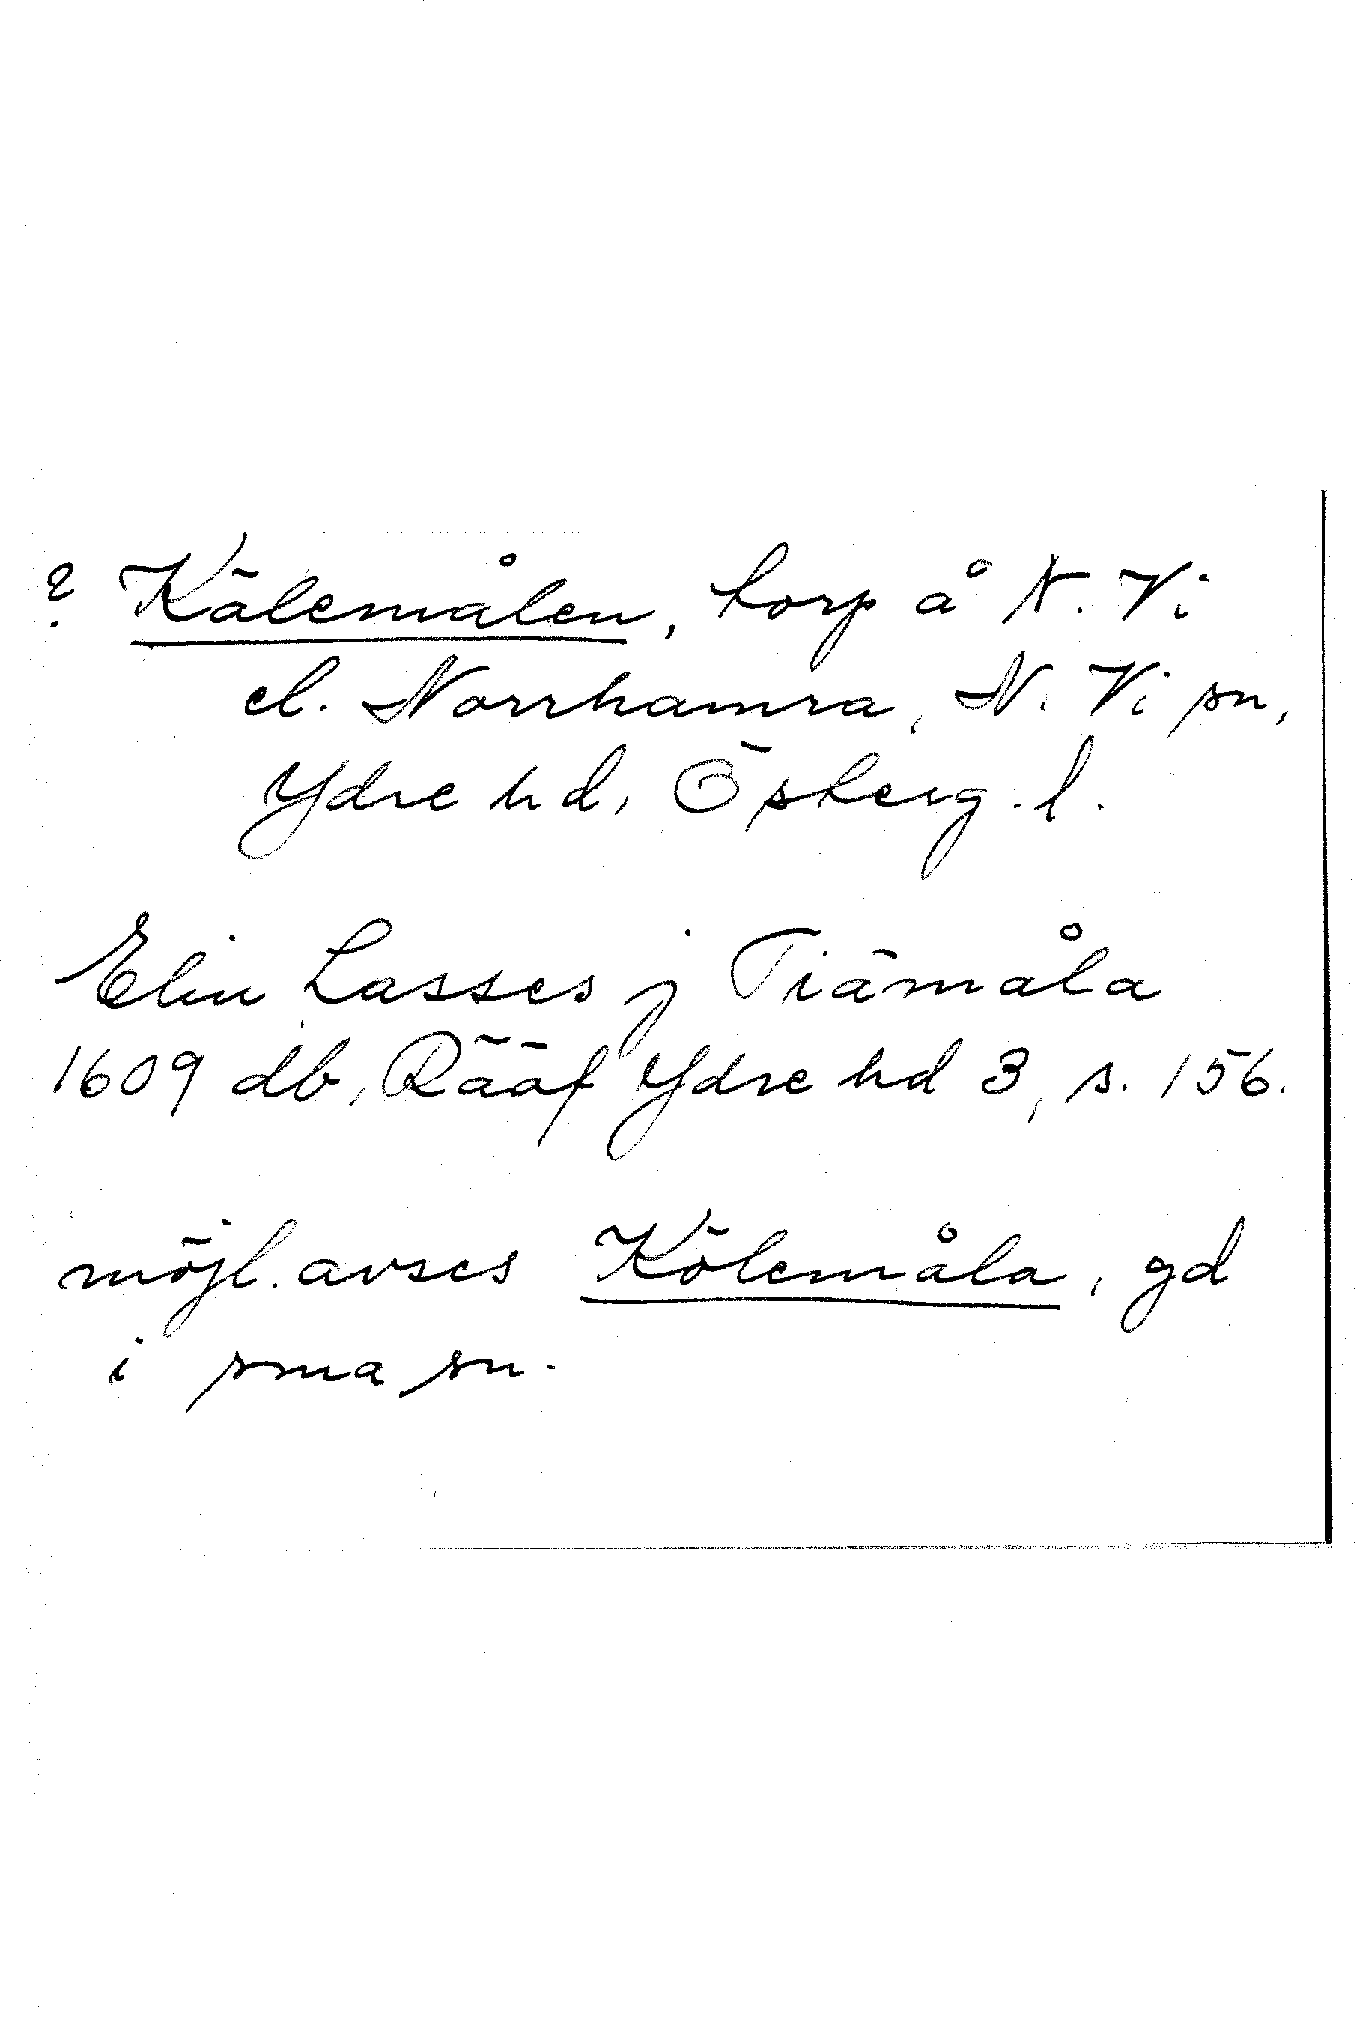 ? Kälemålen, torp å N. Vi
el. Norrhamra, N. Vi sn,
Ydre hd, Österg. l.
Elin Lasses j Tiämåla
1609 db, Rääf Ydre hd 3, s. 156.
möjl. avses Kölemåla, gd
i sma sn.